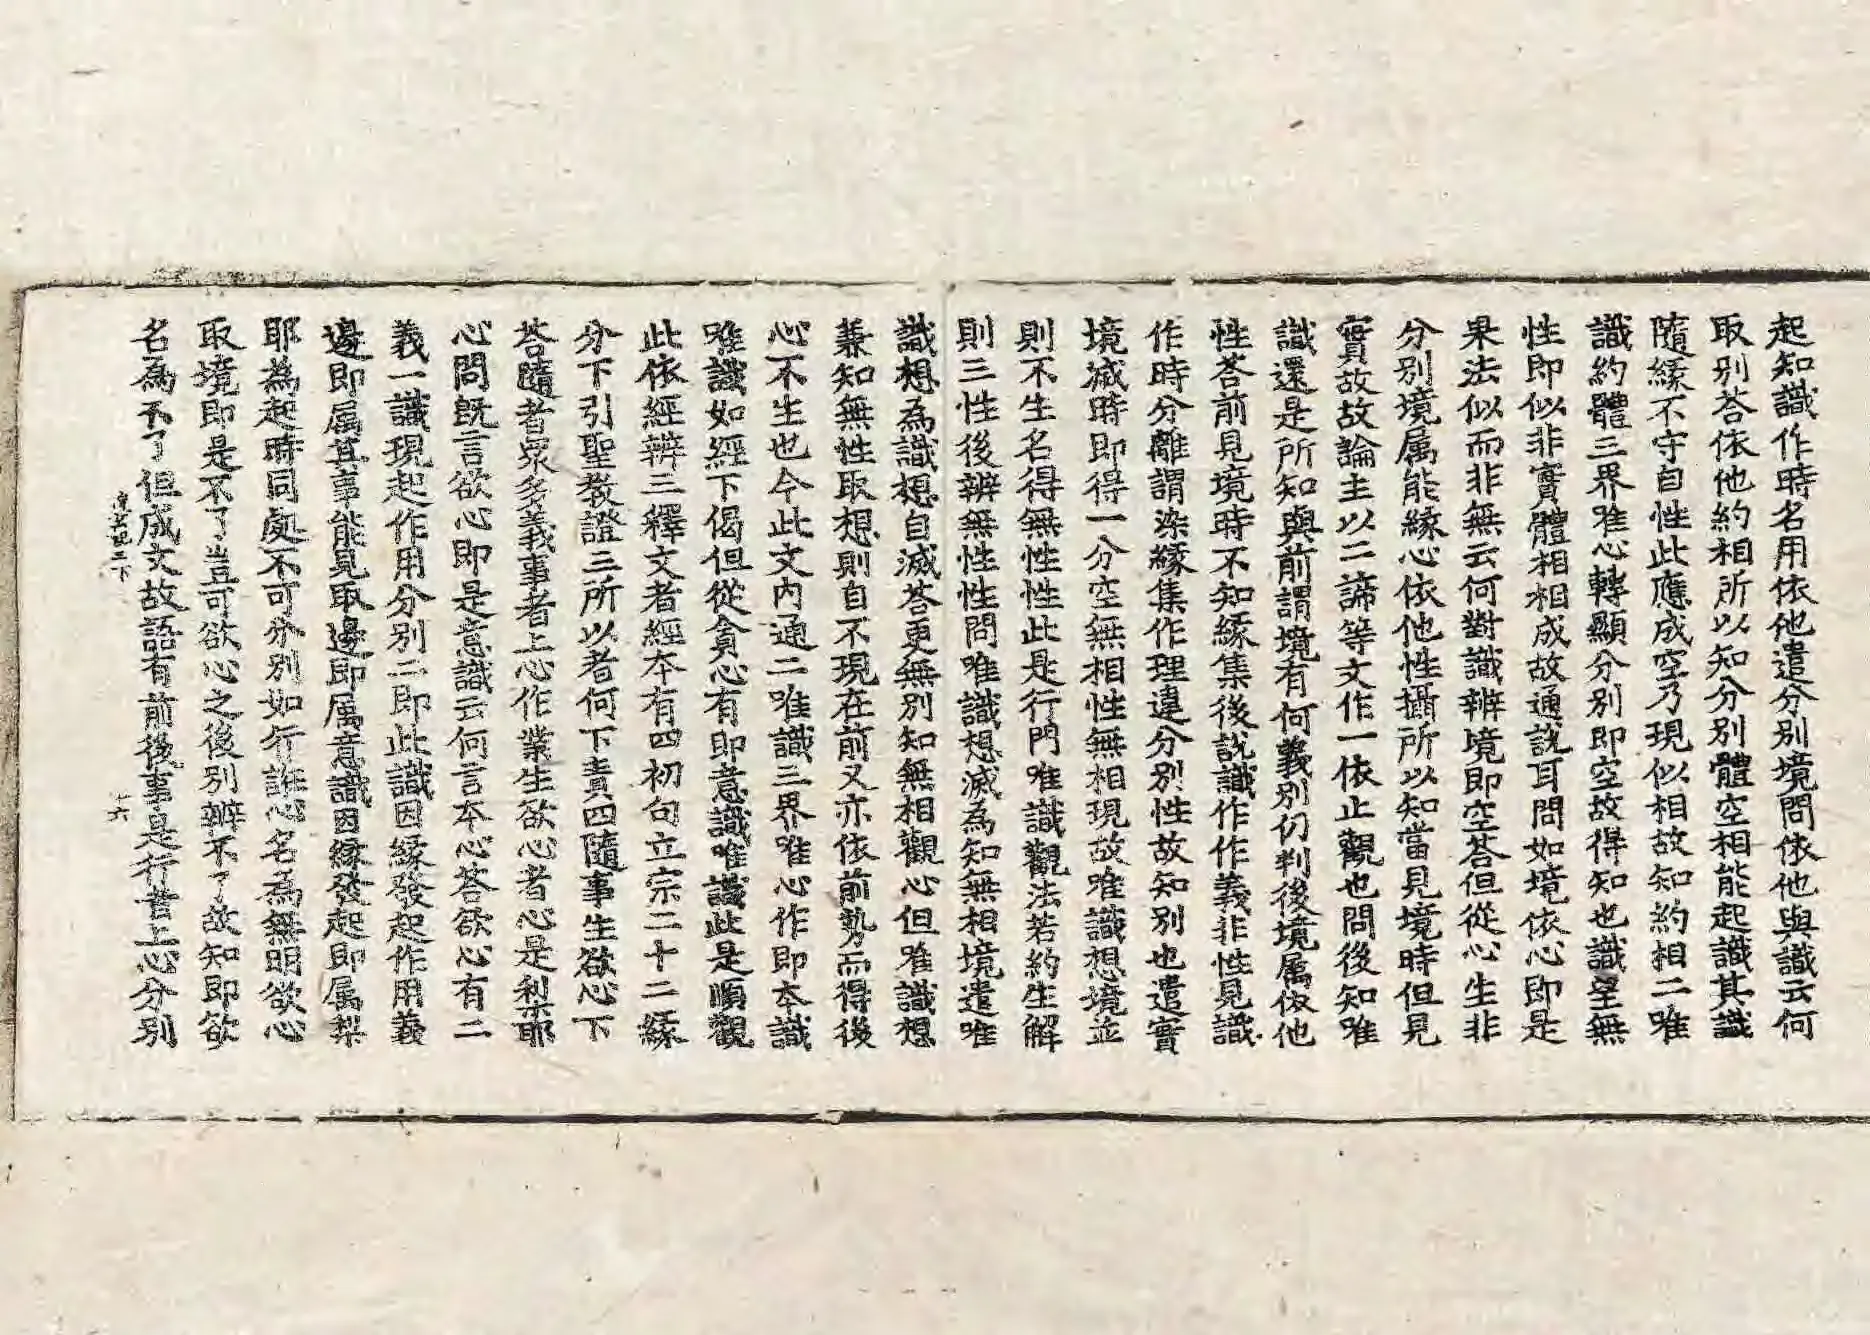 起知識作時名用依他遣分別境問依他與識云何
取別荅依他約相所以知分別體空相能起識其識
隨緣不守自性此應成空乃現似相故知約相二唯
識約體三界唯心轉顯分別即空故得知也識望無
性即似非實體相相成故通說耳問如境依心即是
果法似而非無云何對識辨境即空荅但從心生非
分別境属能緣心依他性攝所以知當見境時但見
實故故論主以二諦等文作一依止觀也問後知唯
識還是所知與前謂境有何義別仍判後境属依他
性荅前見境時不知緣集後說識作作義非性見識
作時分離謂染緣集作理違分別性故知別也遣實
境滅時即得一分空無相性無相現故唯識想境並
則不生名得無性性此是行門唯識觀法若約生解
則三性後辨無性性問唯識想滅為知無相境遣唯
識想為識想自滅荅更無別知無相觀心但唯識想
兼知無性取想則自不現在前又亦依前勢而得後
心不生也今此文內通二唯識三界唯心作即本識
唯識如經下偈但從貪心有即意識唯識此是順觀
此依經辨三釋文者經本有四初句立宗二十二緣
分下引聖教證三所以者何下責四隨事生欲心下
荅隨者眾多義事者上心作業生欲心者心是利耶
心問既言欲心即是意識云何言本心荅欲心有二
義一識現起作用分別二即此識因緣發起作用義
邊即属其事能見取邊即属意識因緣發起即属梨
耶為起時同處不可分別如行誑心名為無明欲心
取境即是不了豈可欲心之後別辨不了故知即欲
名為不了但成文故語有前後事是行者上心分別